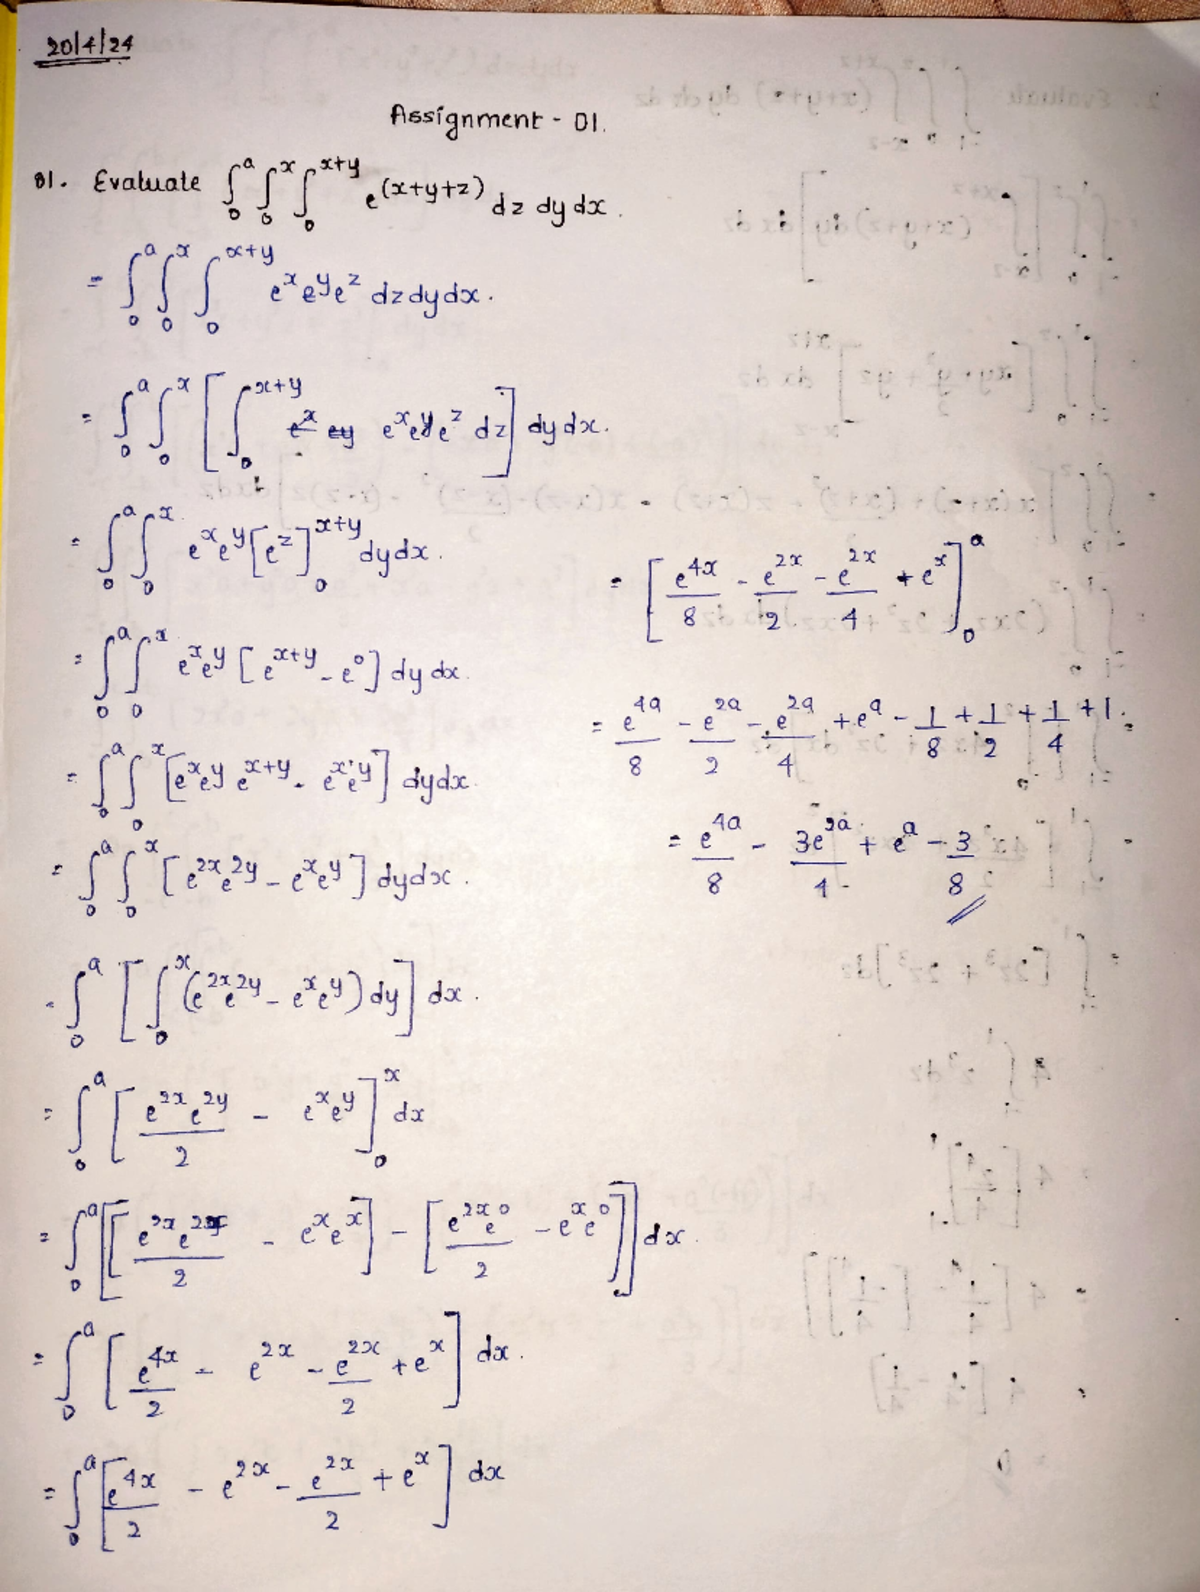 20/4/24
Assignment - 01.
01. Evaluate ∫₀^a ∫₀^x ∫₀^{x+y} e^{(x+y+z)} dz dy dx.
= ∫₀^a ∫₀^x ∫₀^{x+y} e^x e^y e^z dz dy dx.
= ∫₀^a ∫₀^x [∫₀^{x+y} e^x e^y e^z dz] dy dx.
= ∫₀^a ∫₀^x e^x e^y [e^z]₀^{x+y} dy dx.
= ∫₀^a ∫₀^x e^x e^y [e^{x+y} - e^0] dy dx.
= ∫₀^a ∫₀^x [e^x e^y e^{x+y} - e^x e^y] dy dx.
= ∫₀^a ∫₀^x [e^{2x} e^{2y} - e^x e^y] dy dx.
= ∫₀^a [∫₀^x (e^{2x} e^{2y} - e^x e^y) dy] dx.
= ∫₀^a [e^{2x} e^{2y}/2 - e^x e^y]₀^x dx
= ∫₀^a [[e^{2x} e^{2x}/2 - e^x e^x] - [e^{2x} e^0/2 - e^x e^0]] dx.
= ∫₀^a [e^{4x}/2 - e^{2x} - e^{2x}/2 + e^x] dx.
= ∫₀^a [e^{4x}/2 - e^{2x} - e^{2x}/2 + e^x] dx
= [e^{4x}/8 - e^{2x}/2 - e^{2x}/4 + e^x]₀^a
= e^{4a}/8 - e^{2a}/2 - e^{2a}/4 + e^a - 1/8 + 1/2 + 1/4 + 1.
= e^{4a}/8 - 3e^{2a}/4 + e^a - 3/8